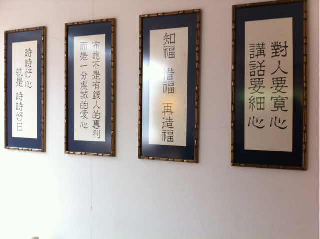 對人要寬心
講話要細心
知福 惜福 再造福
布施不是有錢人的專利
而是一分虔誠的愛心
時時好心
就是 時時好日